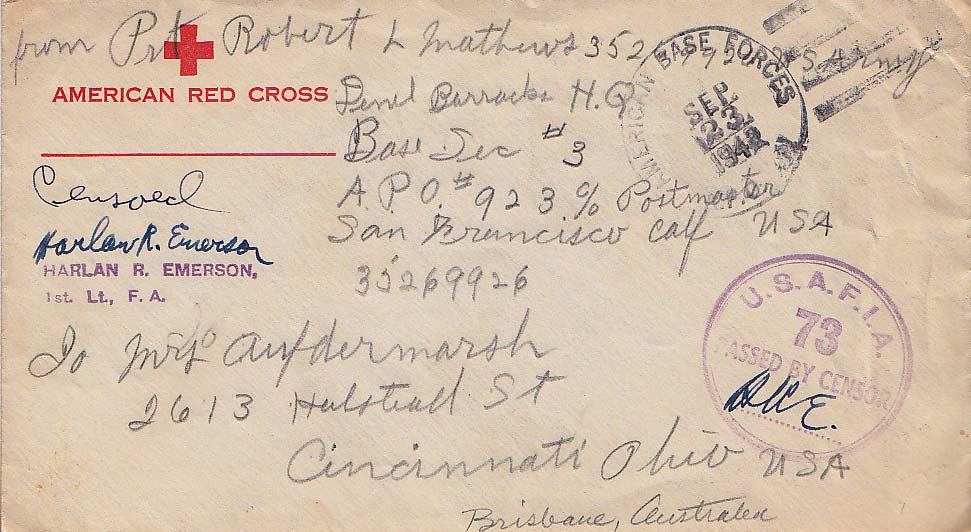 from Pvt Robert L Mathews 352 US Army
AMERICAN RED CROSS
Barracks H.Q
Base Sec #3
A.P.O. #923 % Postmaster
San Francisco Calf USA
35269926
AMERICAN BASE FORCES
SEP.
23
1942
Censored
Harlan R. Emerson
HARLAN R. EMERSON,
1st. Lt., F. A.
U.S.A.F.I.A.
73
PASSED BY CENSOR
HRE.
To Mrs Aufdermarsh
2613 Halstead St
Cincinnati Ohio USA
Brisbane, Australia